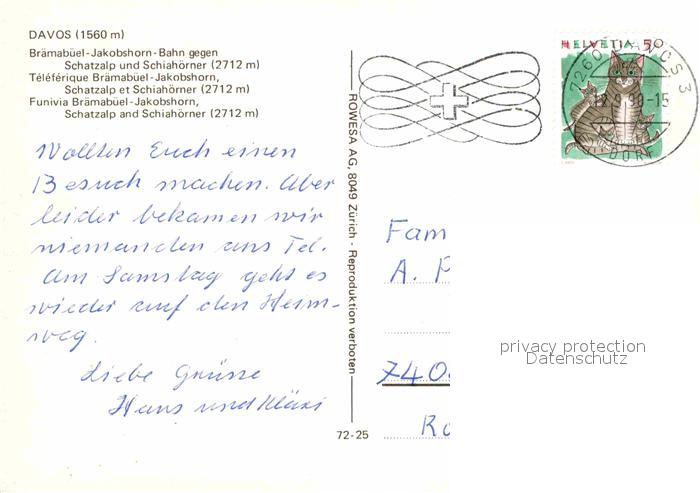 DAVOS (1560 m)
Brämabüel-Jakobshorn-Bahn gegen
Schatzalp und Schiahörner (2712 m)
Téléférique Brämabüel-Jakobshorn,
Schatzalp et Schiahörner (2712 m)
Funivia Brämabüel-Jakobshorn,
Schatzalp and Schiahörner (2712 m)
Wollten Euch einen
Besuch machen. Aber
leider bekamen wir
niemanden ans Tel.
Am Samstag geht es
wieder auf den Heim-
weg.
Liebe Grüsse
Hans und Kläri
ROWESA AG, 8049 Zürich - Reproduktion verboten
72-25
HELVETIA 50
7260 DAVOS 3
90-15
DORF
Fam
A. F
740
Ro
privacy protection
Datenschutz